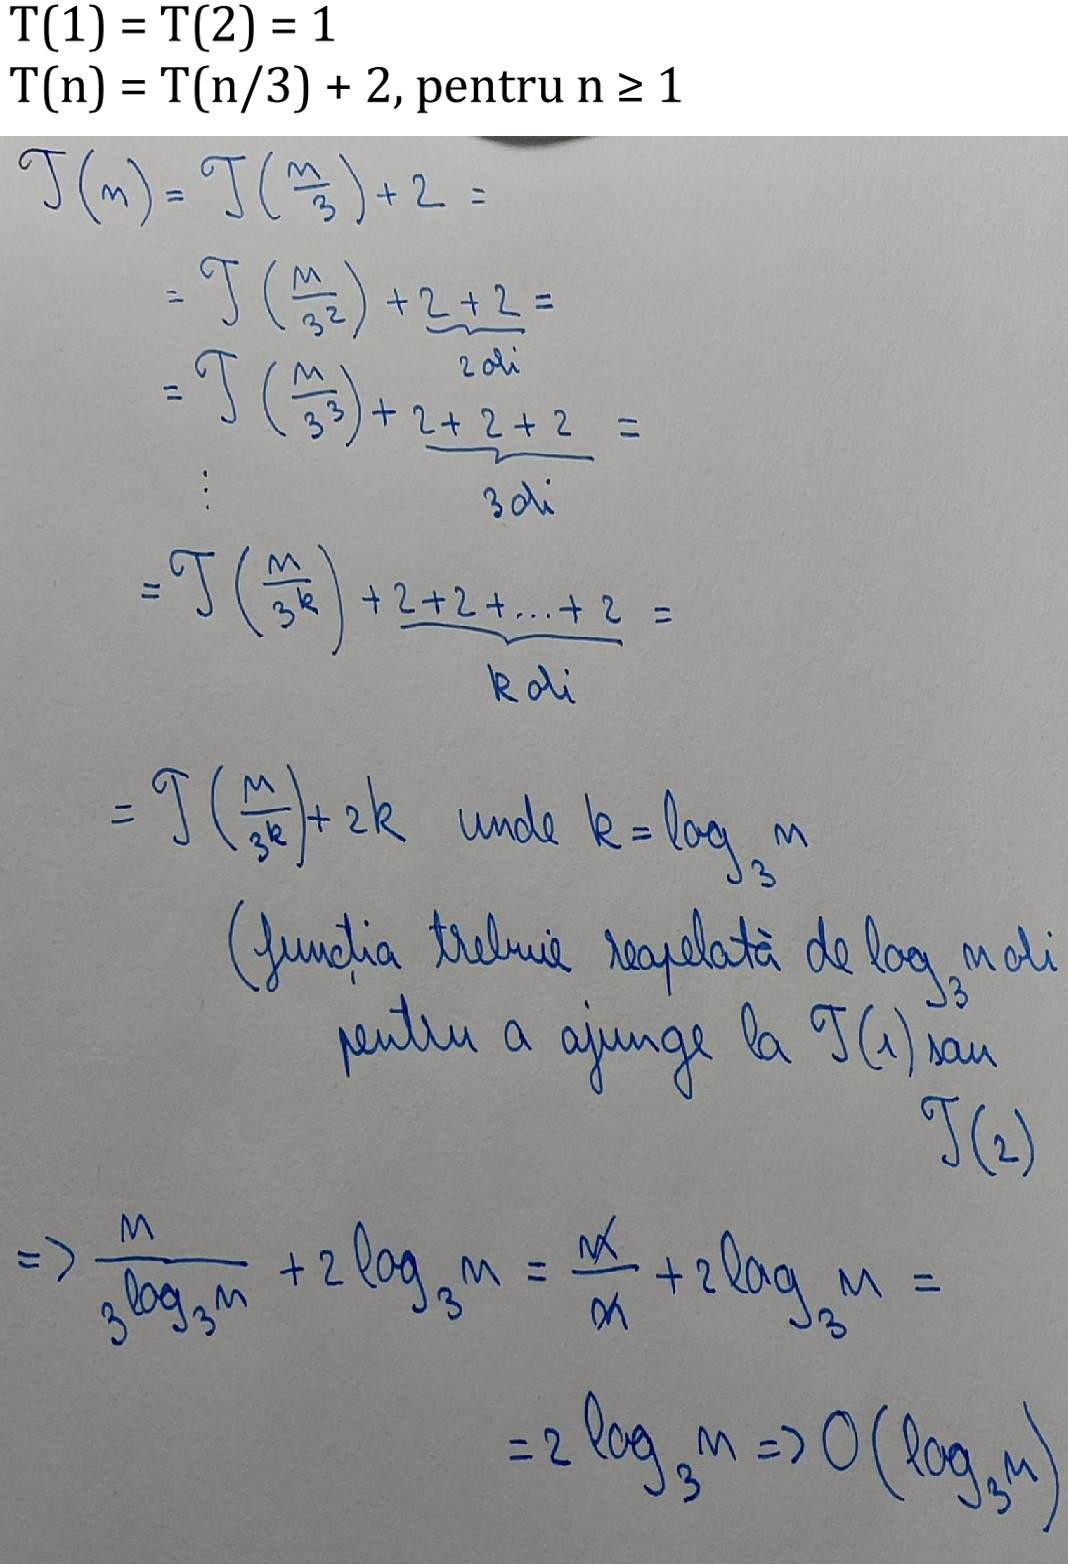 T(1) = T(2) = 1
T(n) = T(n/3) + 2, pentru n ≥ 1
T(n) = T(n/3) + 2 =
= T(n/3²) + 2 + 2 =
2 ori
= T(n/3³) + 2 + 2 + 2 =
3 ori
⋮
= T(n/3^k) + 2 + 2 + ... + 2 =
k ori
= T(n/3^k) + 2k unde k = log₃ n
(funcția trebuie reapelată de log₃ n ori
pentru a ajunge la T(1) sau
T(2)
=> n/3^(log₃ n) + 2 log₃ n = n/n + 2 log₃ n =
= 2 log₃ n => O(log₃ n)